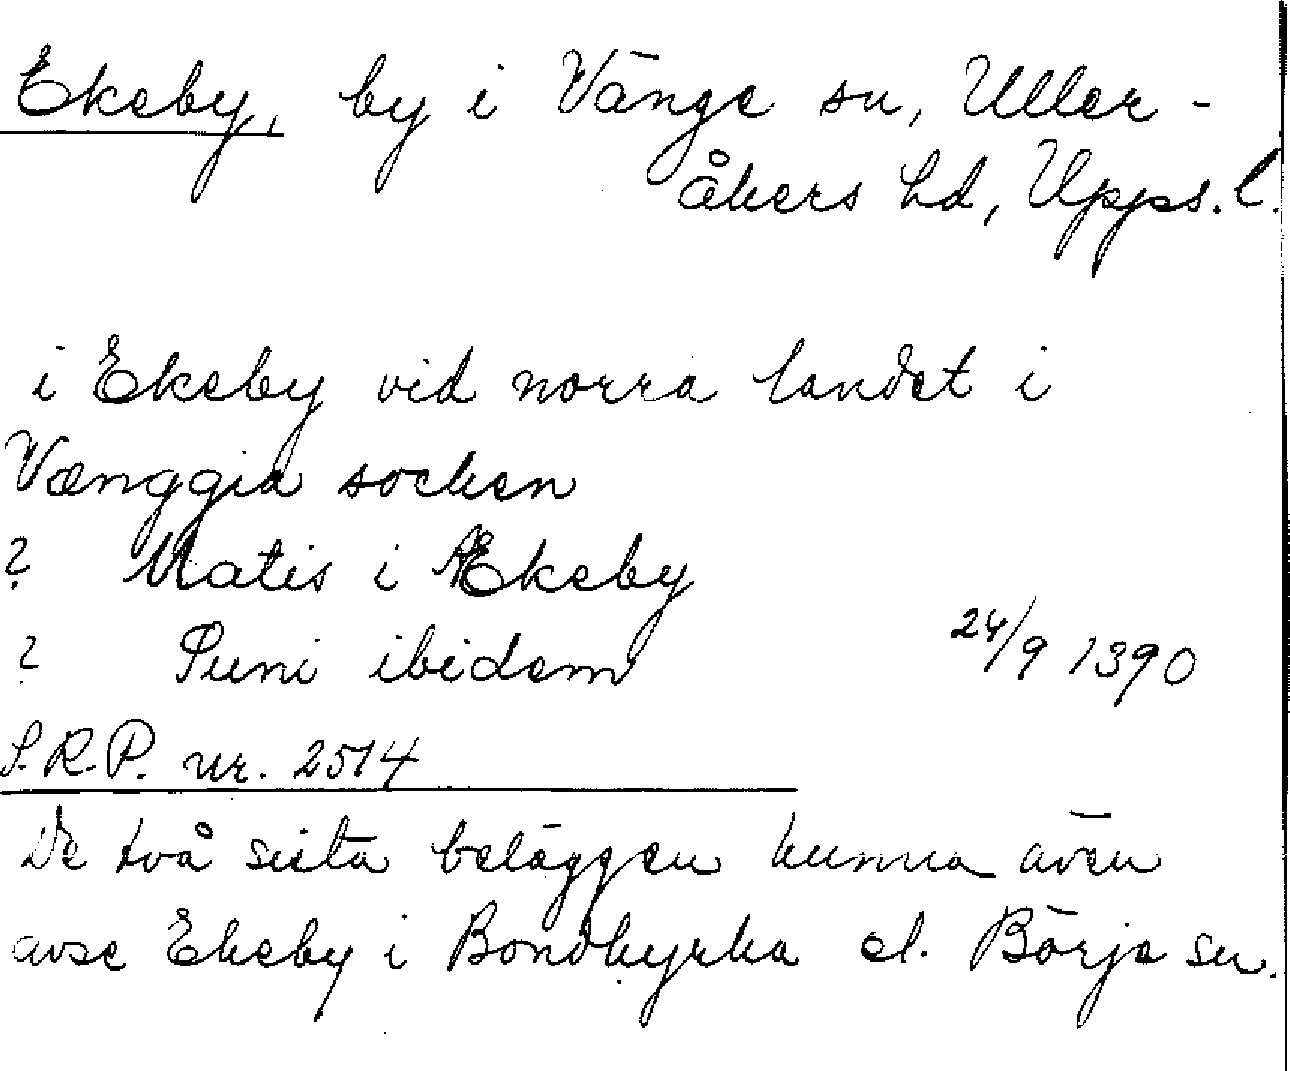 Ekeby, by i Vänge sn, Uller-
åkers hd, Upps. l.
i Ekeby vid norra landet i
Vænggia socken
? Matis i Ækeby
? Suni ibidem 24/9 1390
S.R.P. nr. 2514
De två sista beläggen kunna även
avse Ekeby i Bondkyrka el. Börje sn.